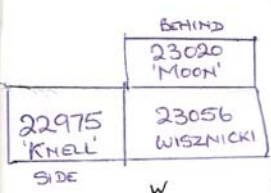 BEHIND
23020
'MOON'
22975
'KNELL'
23056
WISZNICKI
SIDE
W